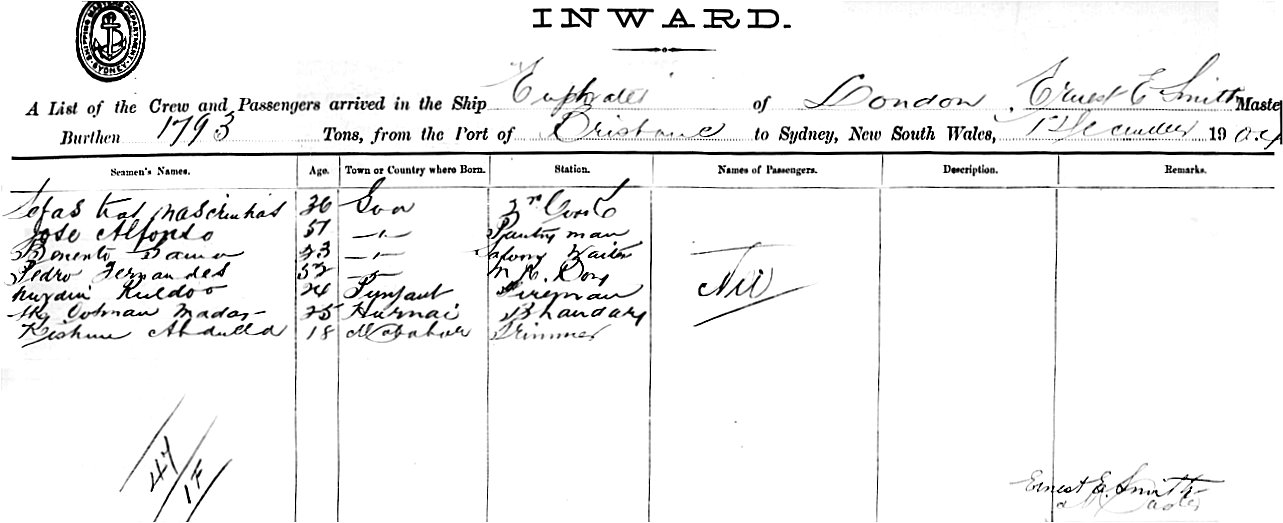 SHIPPING MASTERS DEPARTMENT SYDNEY
INWARD.
A List of the Crew and Passengers arrived in the Ship Euphrates of London, Ernest E Smith Maste
Burthen 1793 Tons, from the Port of Brisbane to Sydney, New South Wales, December 190
Seamen's Names. Age. Town or Country where Born. Station. Names of Passengers. Description. Remarks.
Mascrenhas 36 Goa 3rd Cook
Jose Alfonso 51 —"— Pantry man
Gama 23 —"— Saloon Waiter
Pedro Fernandes 52 —"— Boy
Kuldoo 24 Punjaut Fireman Nil
Oosman Madar 25 Hurnai Bhandary
Abdulla 18 Trimmer
47
1F
Ernest E. Smith
Master